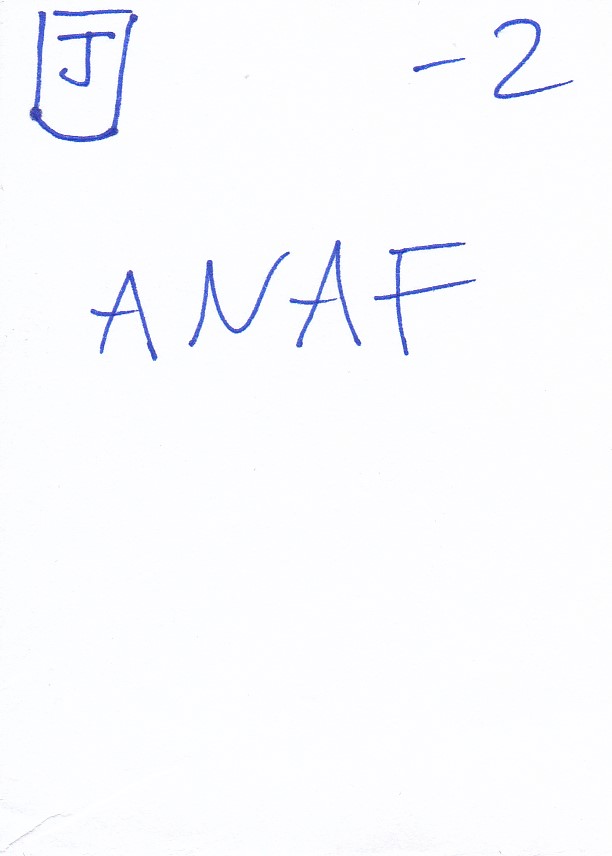 J -2
ANAF